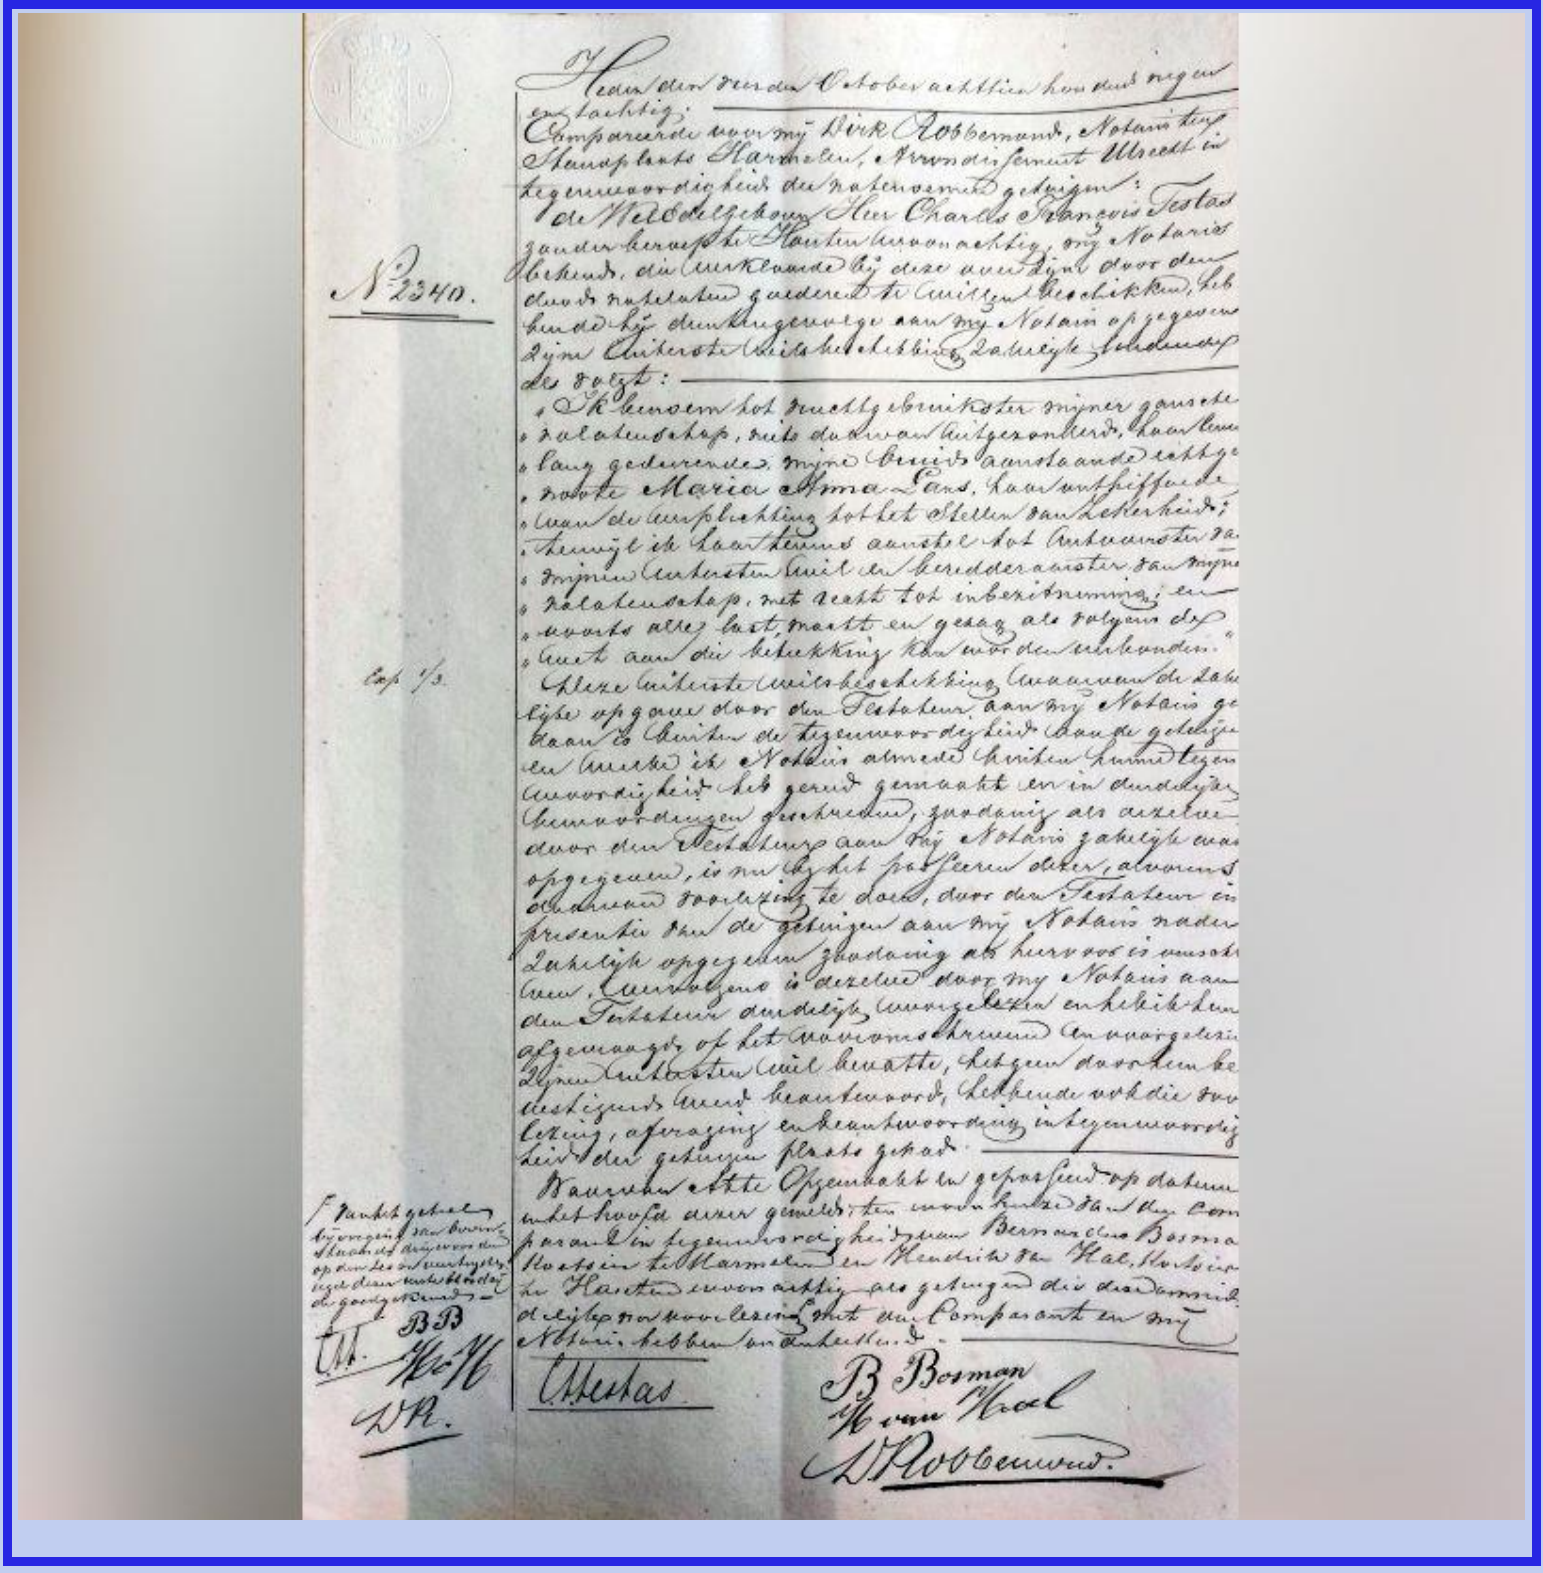 Heden den derden October achttien honderd negen
en tachtig.
Compareerde voor mij Dirk Robbemond, Notaris ter
Standplaats Harmelen, Arrondissement Utrecht in
tegenwoordigheid der natenoemen getuigen:
de WelEdelgeboren Heer Charles François Testas
zonder beroep te Houten woonachtig, mij Notaris
bekend, die verklaarde bij deze over zijne door den
dood natelaten goederen te willen beschikken, heb
bende hij dientengevolge aan mij Notaris opgegeven
zijne uiterste wilsbeschikking zakelijk luidende
als volgt:
N° 2340.
„ Ik benoem tot vruchtgebruikster mijner gansche
„ nalatenschap, niets daarvan uitgezonderd, haar leven
„ lang gedurende, mijne bruid aanstaande echtge
„ noote Maria Anna Lans, haar ontheffende
„ van de verplichting tot het stellen van zekerheid;
„ terwijl ik haar tevens aanstel tot uitvoerster va
„ mijnen uitersten wil en beredderaarster van mijne
„ nalatenschap, met recht tot inbezitneming, en
„ voorts alle last, macht en gezag als volgens de
„ wet aan die betrekking kan worden verbonden.“
Exp 1/3.
Deze uiterste wilsbeschikking waarvan de zake
lijke opgave door den Testateur aan mij Notaris ge
daan is buiten de tegenwoordigheid van de getuigen
en welke ik Notaris almede buiten hunne tegen
woordigheid heb gereed gemaakt en in duidelijke
bewoordingen geschreven, zoodanig als dezelve
door den Testateur aan mij Notaris zakelijk was
opgegeven, is nu bij het passeeren dezer, alvorens
daarvan voorlezing te doen, door den Testateur in
presentie van de getuigen aan mij Notaris nader
zakelijk opgegeven zoodanig als hiervoor is omschr
ven, vervolgens is dezelve door mij Notaris aan
den Testateur duidelijk voorgelezen en heb ik hem
afgevraagd, of het vooromschreven en voorgeleze
zijnen uitersten wil bevatte, hetgeen door hem be
vestigend werd beantwoord, hebbende ook die voor
lezing, afvraging en beantwoording in tegenwoordig
heid der getuigen plaats gehad.
Waarvan Akte Opgemaakt en gepasseerd op datum
in het hoofd dezer gemeld, ten woonhuize van den Com
parant in tegenwoordigheid van Bernardus Bosma
Koetsier te Harmelen en Hendrik van Hal, Koetsier
te Houten woonachtig als getuigen die deze onmid
delijk na voorlezing met den Comparant en mij
Notaris hebben onderteekend.
van het geheel
bijvoeging van boven
staande drie woorden
op den zes en veertigsten
regel dezer
de goedgekeurd
BB
HvH
DR.
CFTestas
B Bosman
H van Hal
DRobbemond.